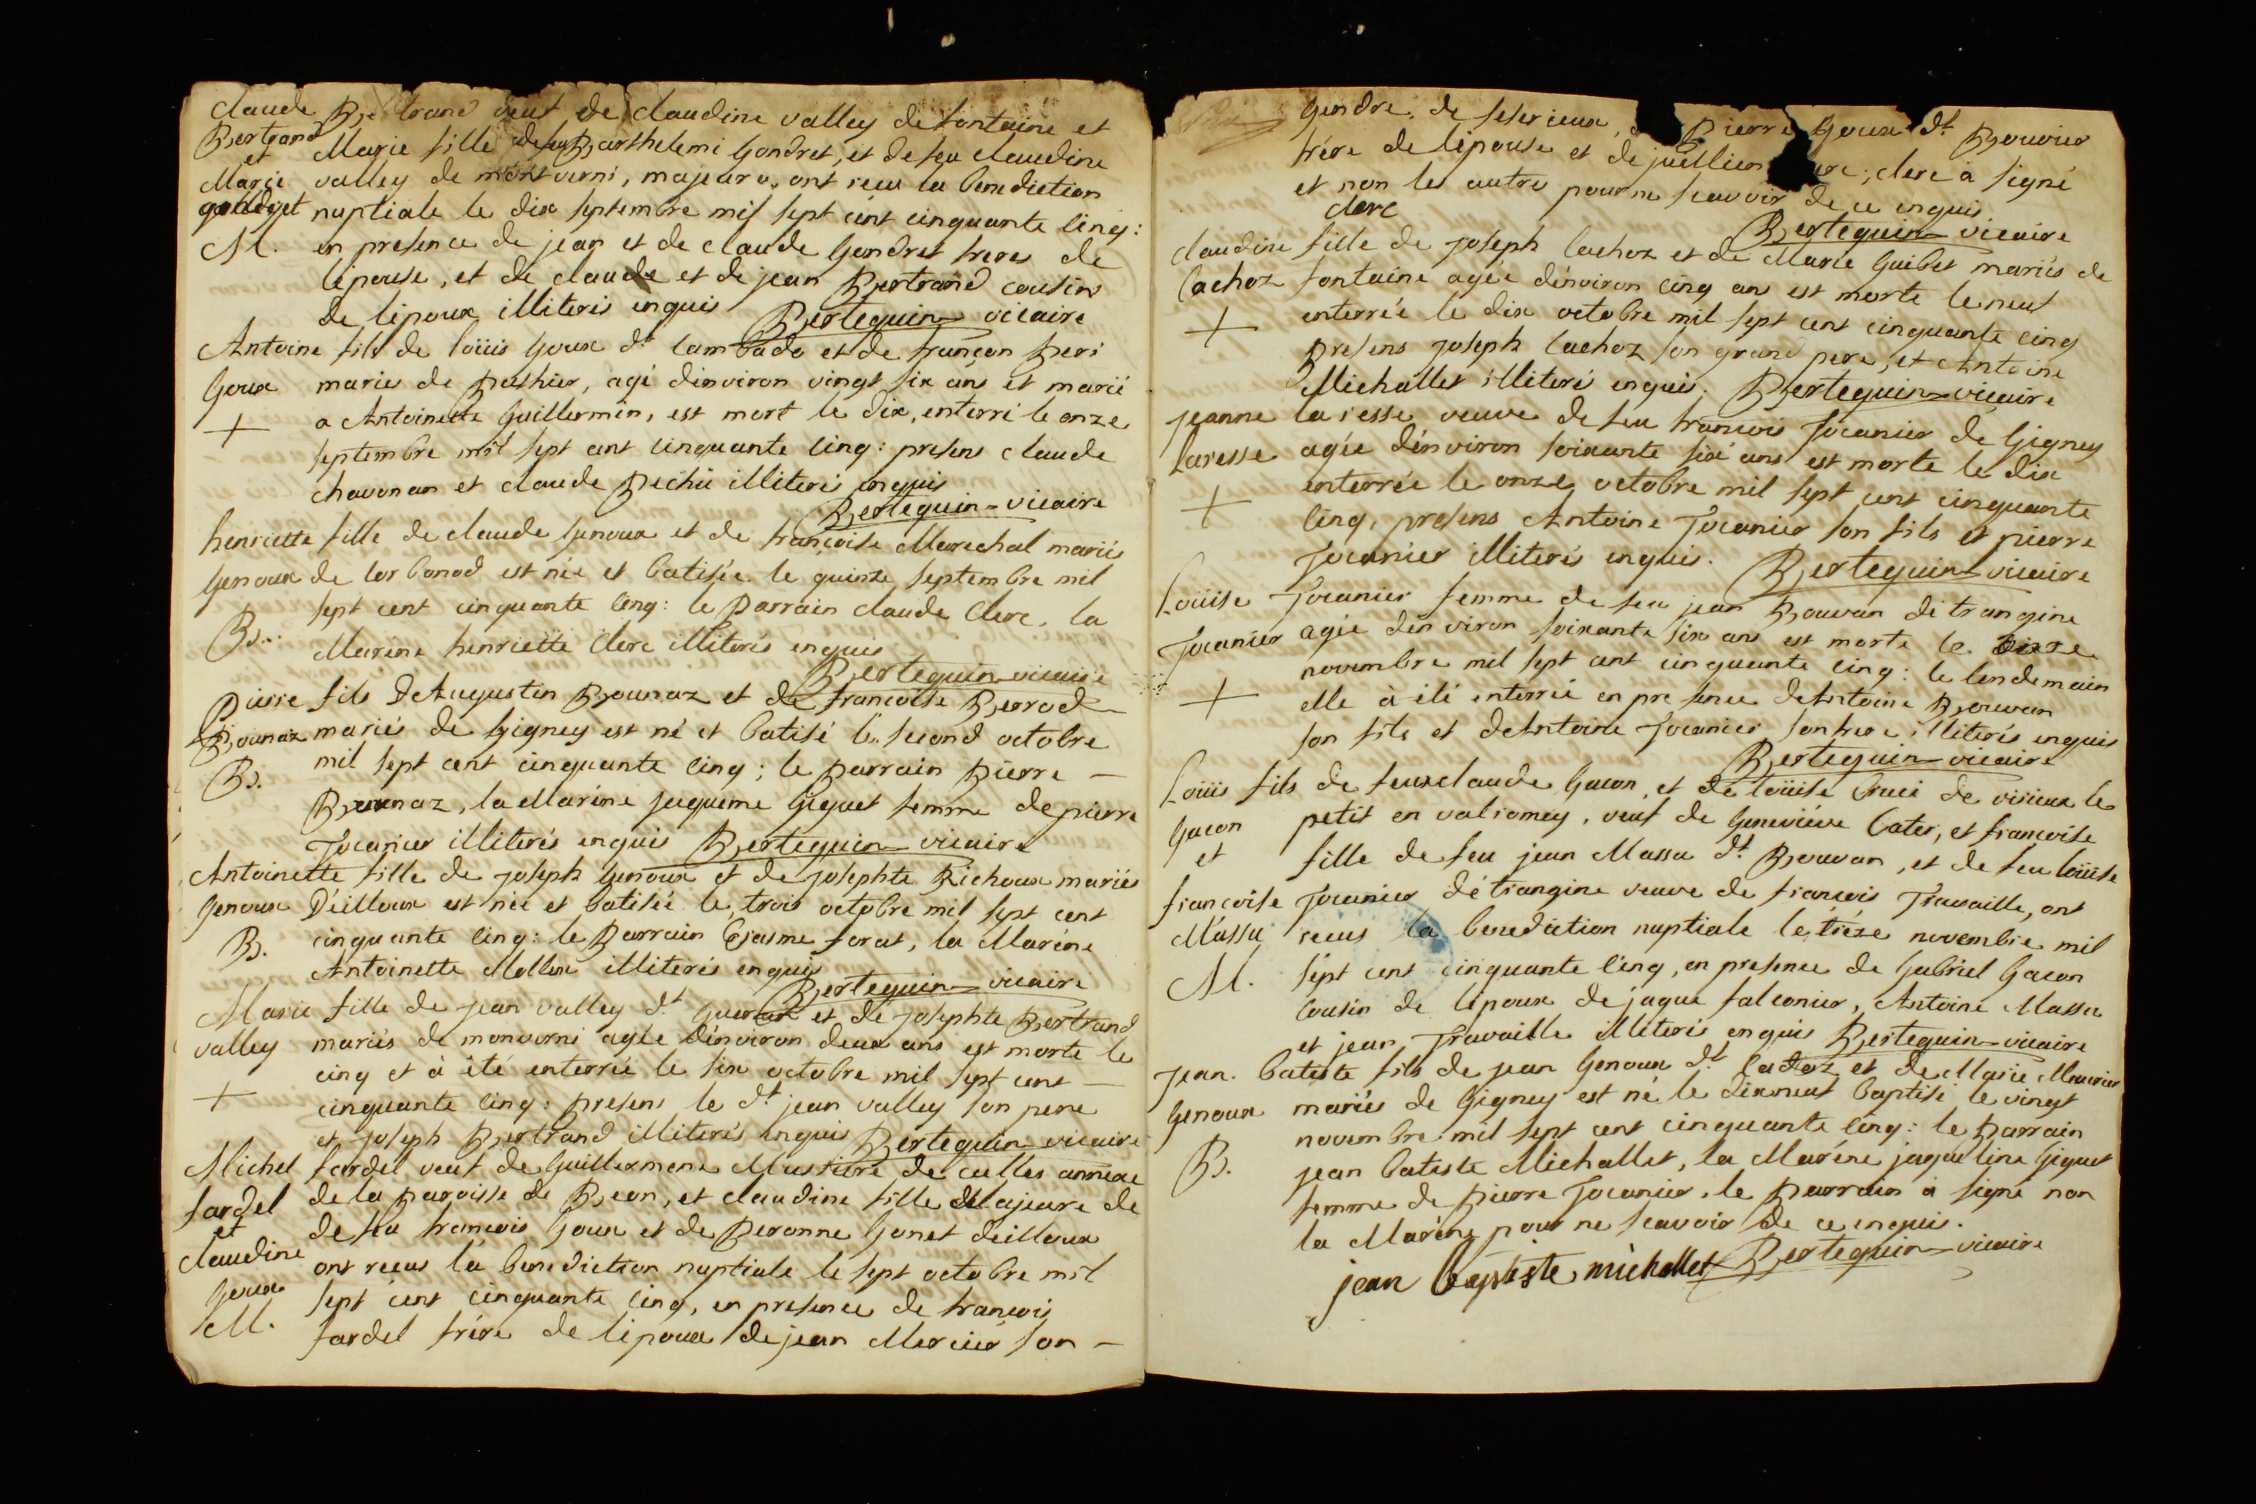 claude Bertrand veuf de claudine valley de fontaine et
Bertrand
et Marie fille de feu Barthelemi Gondret, et de feu claudine
Marie valley de montverni, majeurs, ont recu la benediction
gondret nuptiale le dix septembre mil sept cent cinquante cinq:
M. en presence de jean et de claude Gondret freres de
l'epouse, et de claude et de jean Bertrand cousins
de l'epoux illiterés enquis Bertequin vicaire
Antoine fils de loüis Goux dt lambado et de françon peri
Goux mariés de peshier, agé d'environ vingt six ans et marié
+ a Antoinette Guillermin, est mort le dix, enterré le onze
septembre mil sept cent cinquante cinq: presens claude
chavonan et claude Pichü illiterés enquis
Bertequin vicaire
henriette fille de claude Genoux et de françoise Marechal mariés
Genoux de lorbanod est née et batisée le quinze septembre mil
sept cent cinquante cinq: le Parrain claude Clerc, la
B. Marène henriette Clerc illiterés enquis
Bertequin vicaire
Pierre fils d'Augustin Bounaz et de francoise Berrod
Bounaz mariés de Gigney est né et batisé le second octobre
B. mil sept cent cinquante cinq; le parrain pierre
Bounaz, la Marène jaqueme Giguet femme de pierre
Jocanier illiterés enquis Bertequin vicaire
Antoinette fille de joseph Genoux et de josephte Richoux mariés
Genoux D'eilloux est née et batisée le trois octobre mil sept cent
B. cinquante cinq: le Parrain Erasme forat, la Marène
Antoinette Mollex illiterés enquis
Bertequin vicaire
Marie fille de jean valley dt et de josephte Bertrand
valley mariés de monverni agée d'environ deux ans est morte le
+ cinq et à été enterrée le six octobre mil sept cent
cinquante cinq: presens le dt jean valley son pere
et joseph Bertrand illiterés enquis Bertequin vicaire
Michel fardel veuf de Guillermene Mustiere de culles annexe
fardel de la paroisse de Beon, et claudine fille Majeure de
et de feu francois Goux et de Peronne Gonet d'eilloux
claudine ont recus la benediction nuptiale le sept octobre mil
Goux sept cent cinquante cinq, en presence de francois
M. fardel frére de l'epoux de jean Mercier son
gendre, de Pierre Goux dt Bouvier
frére de l'epouse et de juillien clerc, clerc à signé
et non les autres pour ne scavoir de ce enquis
clerc Bertequin vicaire
claudine fille de joseph Cachoz et de Marie Guibet mariés de
Cachoz fontaine agée d'environ cinq ans est morte le neuf
+ enterrée le dix octobre mil sept cent cinquante cinq
presens joseph Cachoz son grand pere, et Antoine
Michallet illiterés enquis. Bertequin vicaire
jeanne laresse veuve de feu francois Jocanier de Gigney
Laresse agée d'environ soixante six ans est morte le dix
+ enterrée le onze octobre mil sept cent cinquante
cinq, presens Antoine Jocanier son fils et pierre
Jocanier illiterés enquis. Bertequin vicaire
Loüise Jocanier femme de feu jean Bouvan de trangine
Jocanier agée d'environ soixante six ans est morte le onze
novembre mil sept cent cinquante cinq: le lendemain
+ elle à été enterrée en presence d'Antoine Bouvan
son fils et d'Antoine Jocanier son frere illiterés enquis
Bertequin vicaire
Loüis fils de feu claude Gacon, et de loüise de virieux le
Gacon petit en valromey, veuf de Geneviève Cater, et francoise
et fille de feu jean Massu dt Bouvan, et de feu loüise
francoise Jocanier de trangine veuve de francois Travaille, ont
Massu recus la benediction nuptiale le tréze novembre mil
M. sept cent cinquante cinq, en presence de Gabriel Gacon
cousin de l'epoux de jaque falconier, Antoine Massu
et jean Travaille illiterés enquis Bertequin vicaire
jean Bateste fils de jean Genoux dt Cadoz et de Marie Mounier
Genoux mariés de Gigney est né le dixneuf baptisé le vingt
novembre mil sept cent cinquante cinq: le parrain
B. jean bateste Michallet, la Maréne jaqueline Giguet
femme de pierre Jocanier, le parrain à signé non
la Marène pour ne scavoir de ce enquis.
jean baptiste michallet Bertequin vicaire